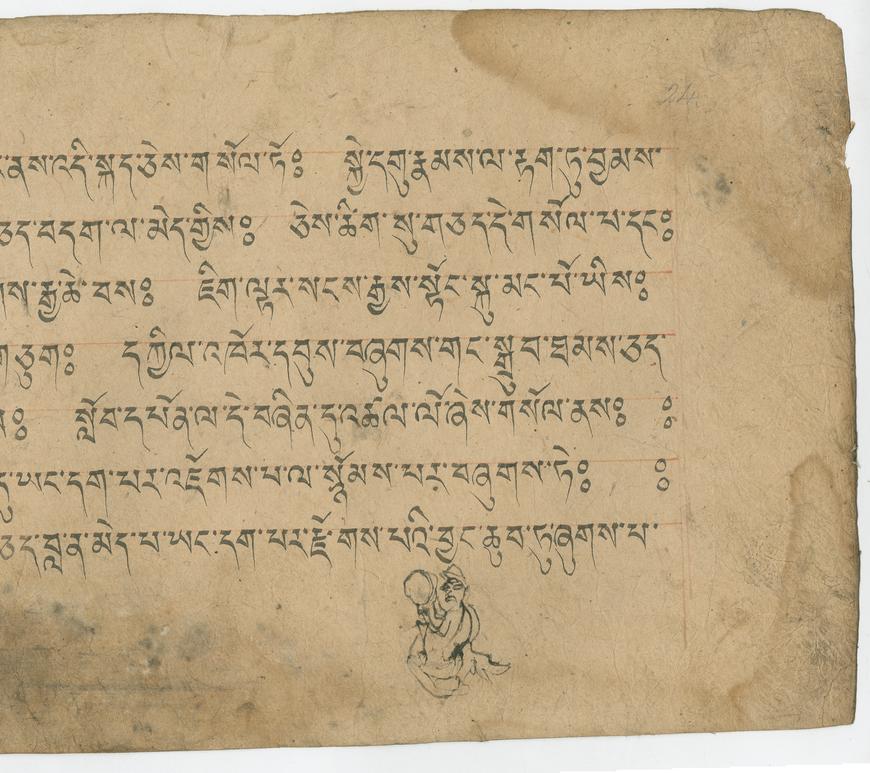 24
ནས་འདི་སྐད་ཅེས་གསོལ་ཏོ༔ སྐྱེ་དགུ་རྣམས་ལ་རྟག་ཏུ་བྱམས་
ཅད་བདག་ལ་མེད་གྱིས༔ ཅེས་ཚིག་སུ་གཅད་དེ་གསོལ་པ་དང༔
གས་རྒྱ་ཆེ་བས༔ ཇིག་ལྟར་སངས་རྒྱས་སྟོང་སྐུ་མང་པོ་ཡིས༔
ག་ཅུག༔ དཀྱིལ་འཁོར་དབུས་བཞུགས་གང་སྒྲུབ་ཐམས་ཅད་
ས༔ སློབ་དཔོན་ལ་དེ་བཞིན་དུ་འཚལ་ལོ་ཞེས་གསོལ་ནས༔ ༔
དུ་ཡང་དག་པར་འཇོགས་པ་ལ་སྙོམས་པར་བཞུགས་ཏེ༔ ༔
ཅད་བླན་མེད་པ་ཡང་དག་པར་རྫོགས་པའི་བྱང་ཆུབ་ཏུ་ཞུགས་པ་